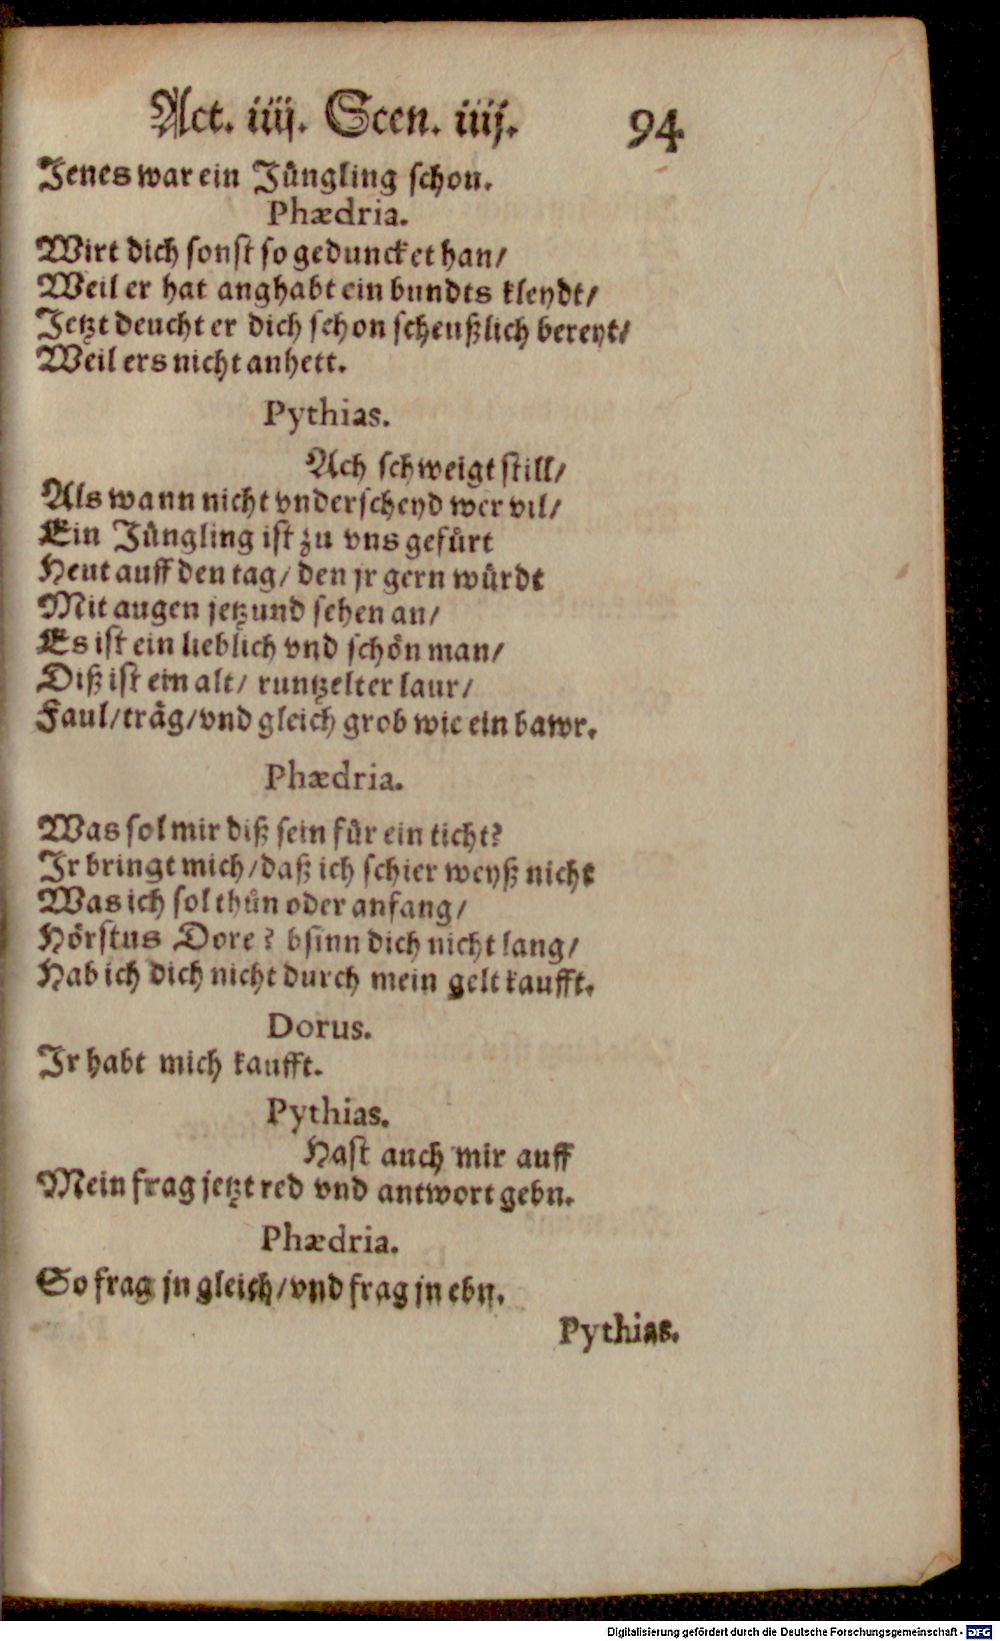 Act. iiij. Scen. iiij. 94
Jenes war ein Jüngling schon.
Phædria.
Wirt dich sonst so geduncket han/
Weil er hat anghabt ein bundts kleydt/
Jetzt deucht er dich schon scheußlich bereyt/
Weil ers nicht anhett.
Pythias.
Ach schweigt still/
Als wann nicht vnderscheyd wer vil/
Ein Jüngling ist zu vns gefürt
Heut auff den tag/ den jr gern würdt
Mit augen jetzund sehen an/
Es ist ein lieblich vnd schön man/
Diß ist ein alt/ runtzelter laur/
Faul/träg/vnd gleich grob wie ein bawr.
Phædria.
Was sol mir diß sein für ein ticht?
Jr bringt mich/daß ich schier weyß nicht
Was ich sol thůn oder anfang/
Hörstus Dore? bsinn dich nicht lang/
Hab ich dich nicht durch mein gelt kaufft.
Dorus.
Jr habt mich kaufft.
Pythias.
Hast auch mir auff
Mein frag jetzt red vnd antwort gebn.
Phædria.
So frag jn gleich/vnd frag jn ebn.
Pythias.
Digitalisierung gefördert durch die Deutsche Forschungsgemeinschaft - DFG